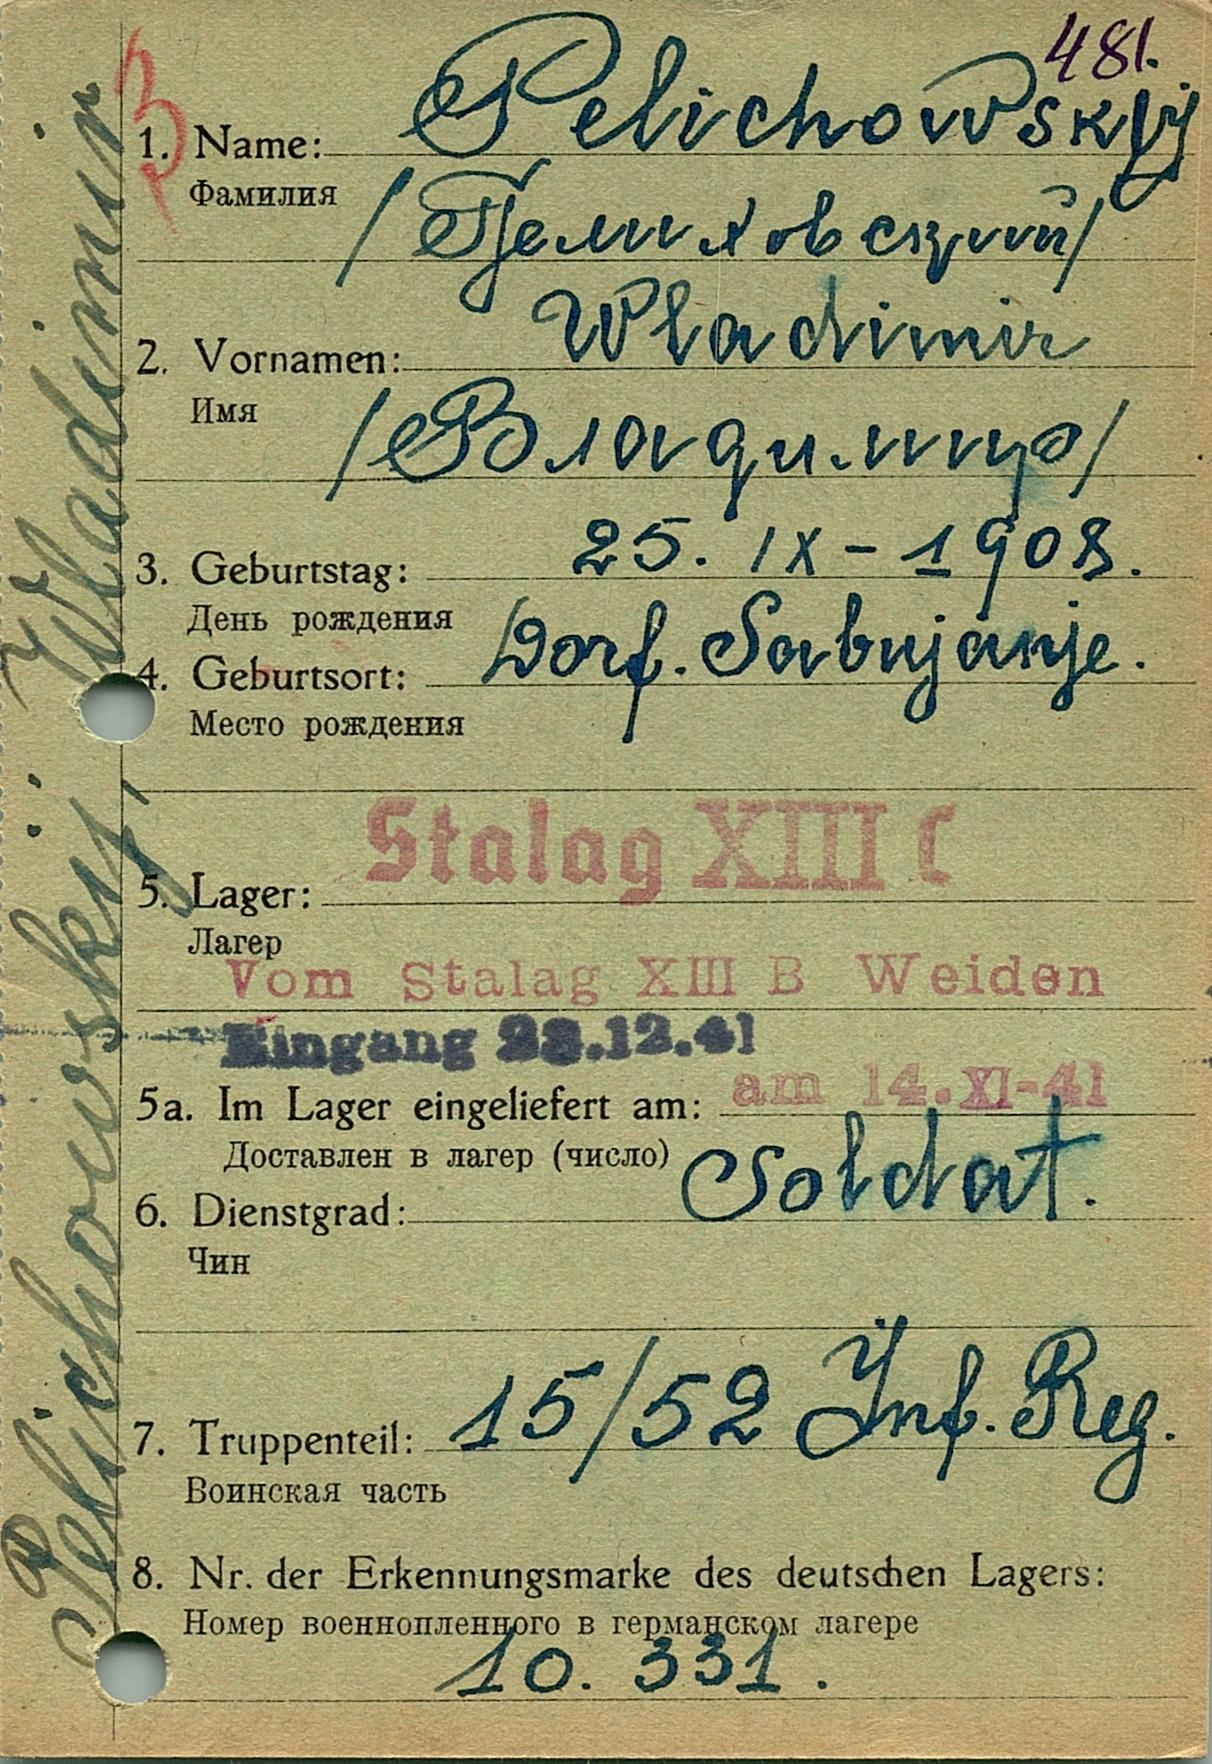 481.
3
1. Name: Pelichowskyj
Фамилия /Пелиховский/
Wladimir
2. Vornamen:
Имя /Владимир/
3. Geburtstag: 25. IX - 1908.
День рождения
4. Geburtsort: Dorf. Sabujanje.
Место рождения
Stalag XIII C
5. Lager:
Лагер
Vom Stalag XIII B Weiden
Eingang 28.12.41
am 14.XI-41
5a. Im Lager eingeliefert am:
Доставлен в лагер (число)
6. Dienstgrad: Soldat.
Чин
7. Truppenteil: 15/52 Inf. Reg.
Воинская часть
8. Nr. der Erkennungsmarke des deutschen Lagers:
Номер военнопленного в германском лагере
10. 331.
Pelichowskij, Wladimir